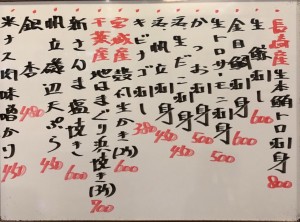 長崎産 生本鮪トロ刺身 800
生 鯵刺し 600
金目鯛刺身 600
生トロサーモン刺身 500
かつお刺身 500
活生だこ刺身 450
活 帆立刺身 450
キビナゴ刺し 380
宮城産 殻付生かき(3ヶ) 600
千葉産 地はまぐり浜焼き(3ヶ) 700
新さんま塩焼き 600
帆立磯辺天ぷら 450
銀杏 480
米ナス肉味噌かり 450